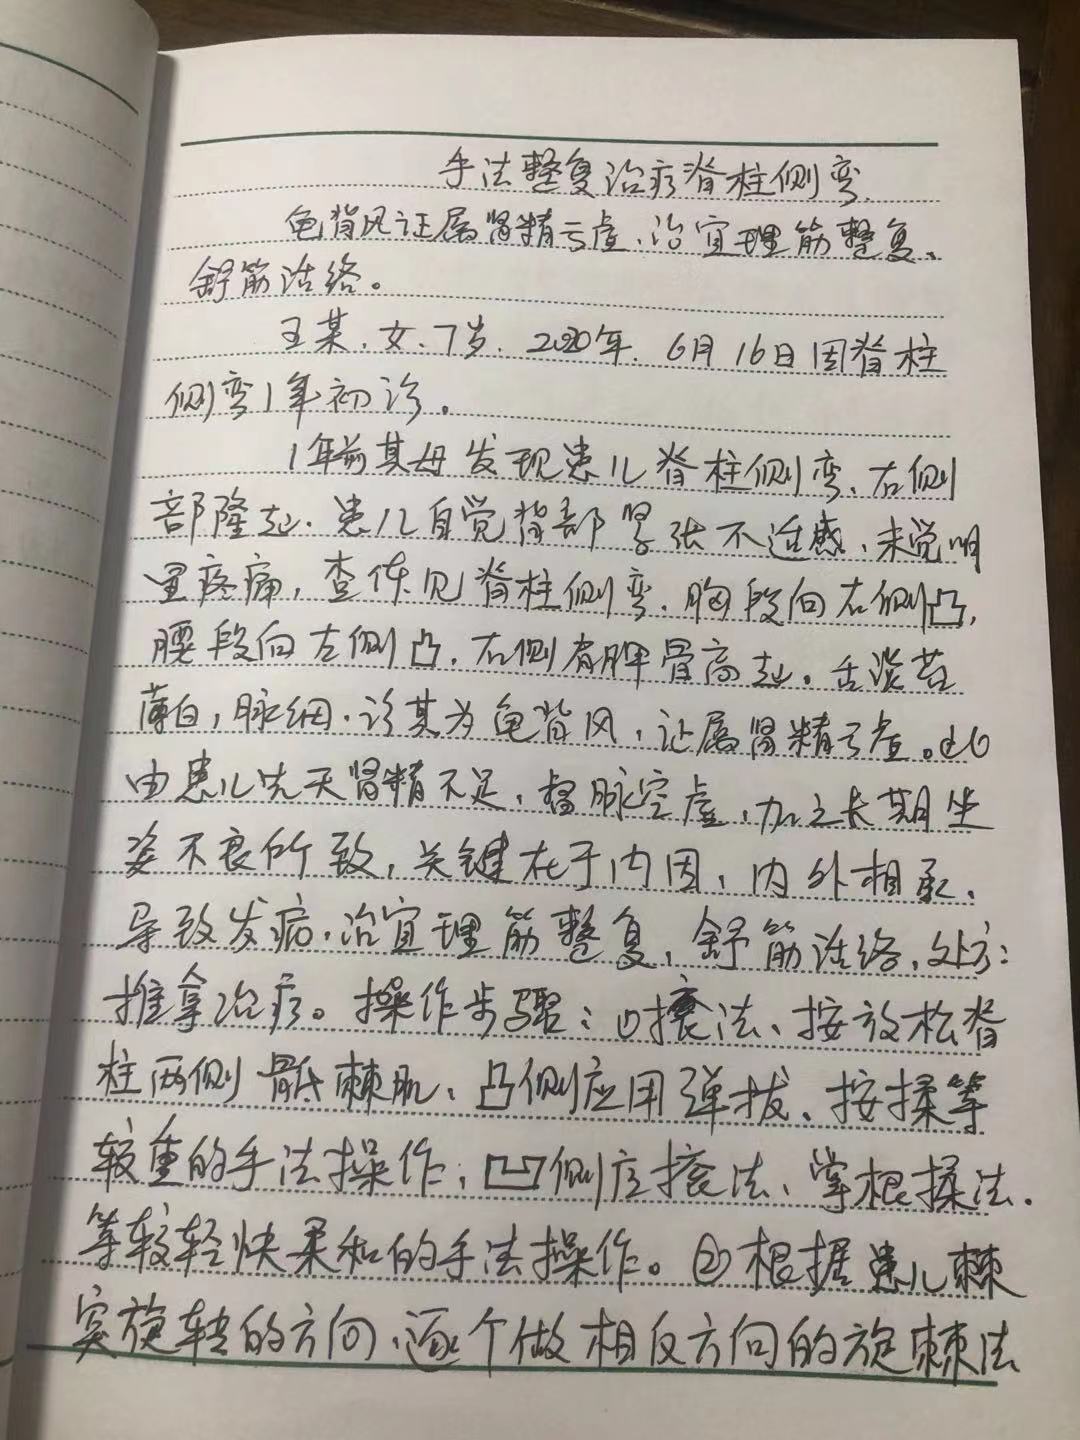 手法整复治疗脊柱侧弯
龟背风证属肾精亏虚、治宜理筋整复、
舒筋活络。
王某、女、7岁、2020年、6月16日因脊柱
侧弯1年初诊。
1年前其母发现患儿脊柱侧弯、右侧
部隆起、患儿自觉背部紧张不适感、未觉明
显疼痛，查体见脊柱侧弯、胸段向右侧凸，
腰段向左侧凸、右侧肩胛骨高起。舌淡苔
薄白，脉细、诊其为龟背风，证属肾精亏虚。此
由患儿先天肾精不足，督脉空虚，加之长期坐
姿不良所致，关键在于内因，内外相承、
导致发病、治宜理筋整复，舒筋活络、处方：
推拿治疗。操作步骤：①㨰法、按放松脊
柱两侧骶棘肌、凸侧应用弹拨、按揉等
较重的手法操作；凹侧应㨰法、掌根揉法、
等较轻快柔和的手法操作。②根据患儿棘
突旋转的方向、逐个做相反方向的旋棘法